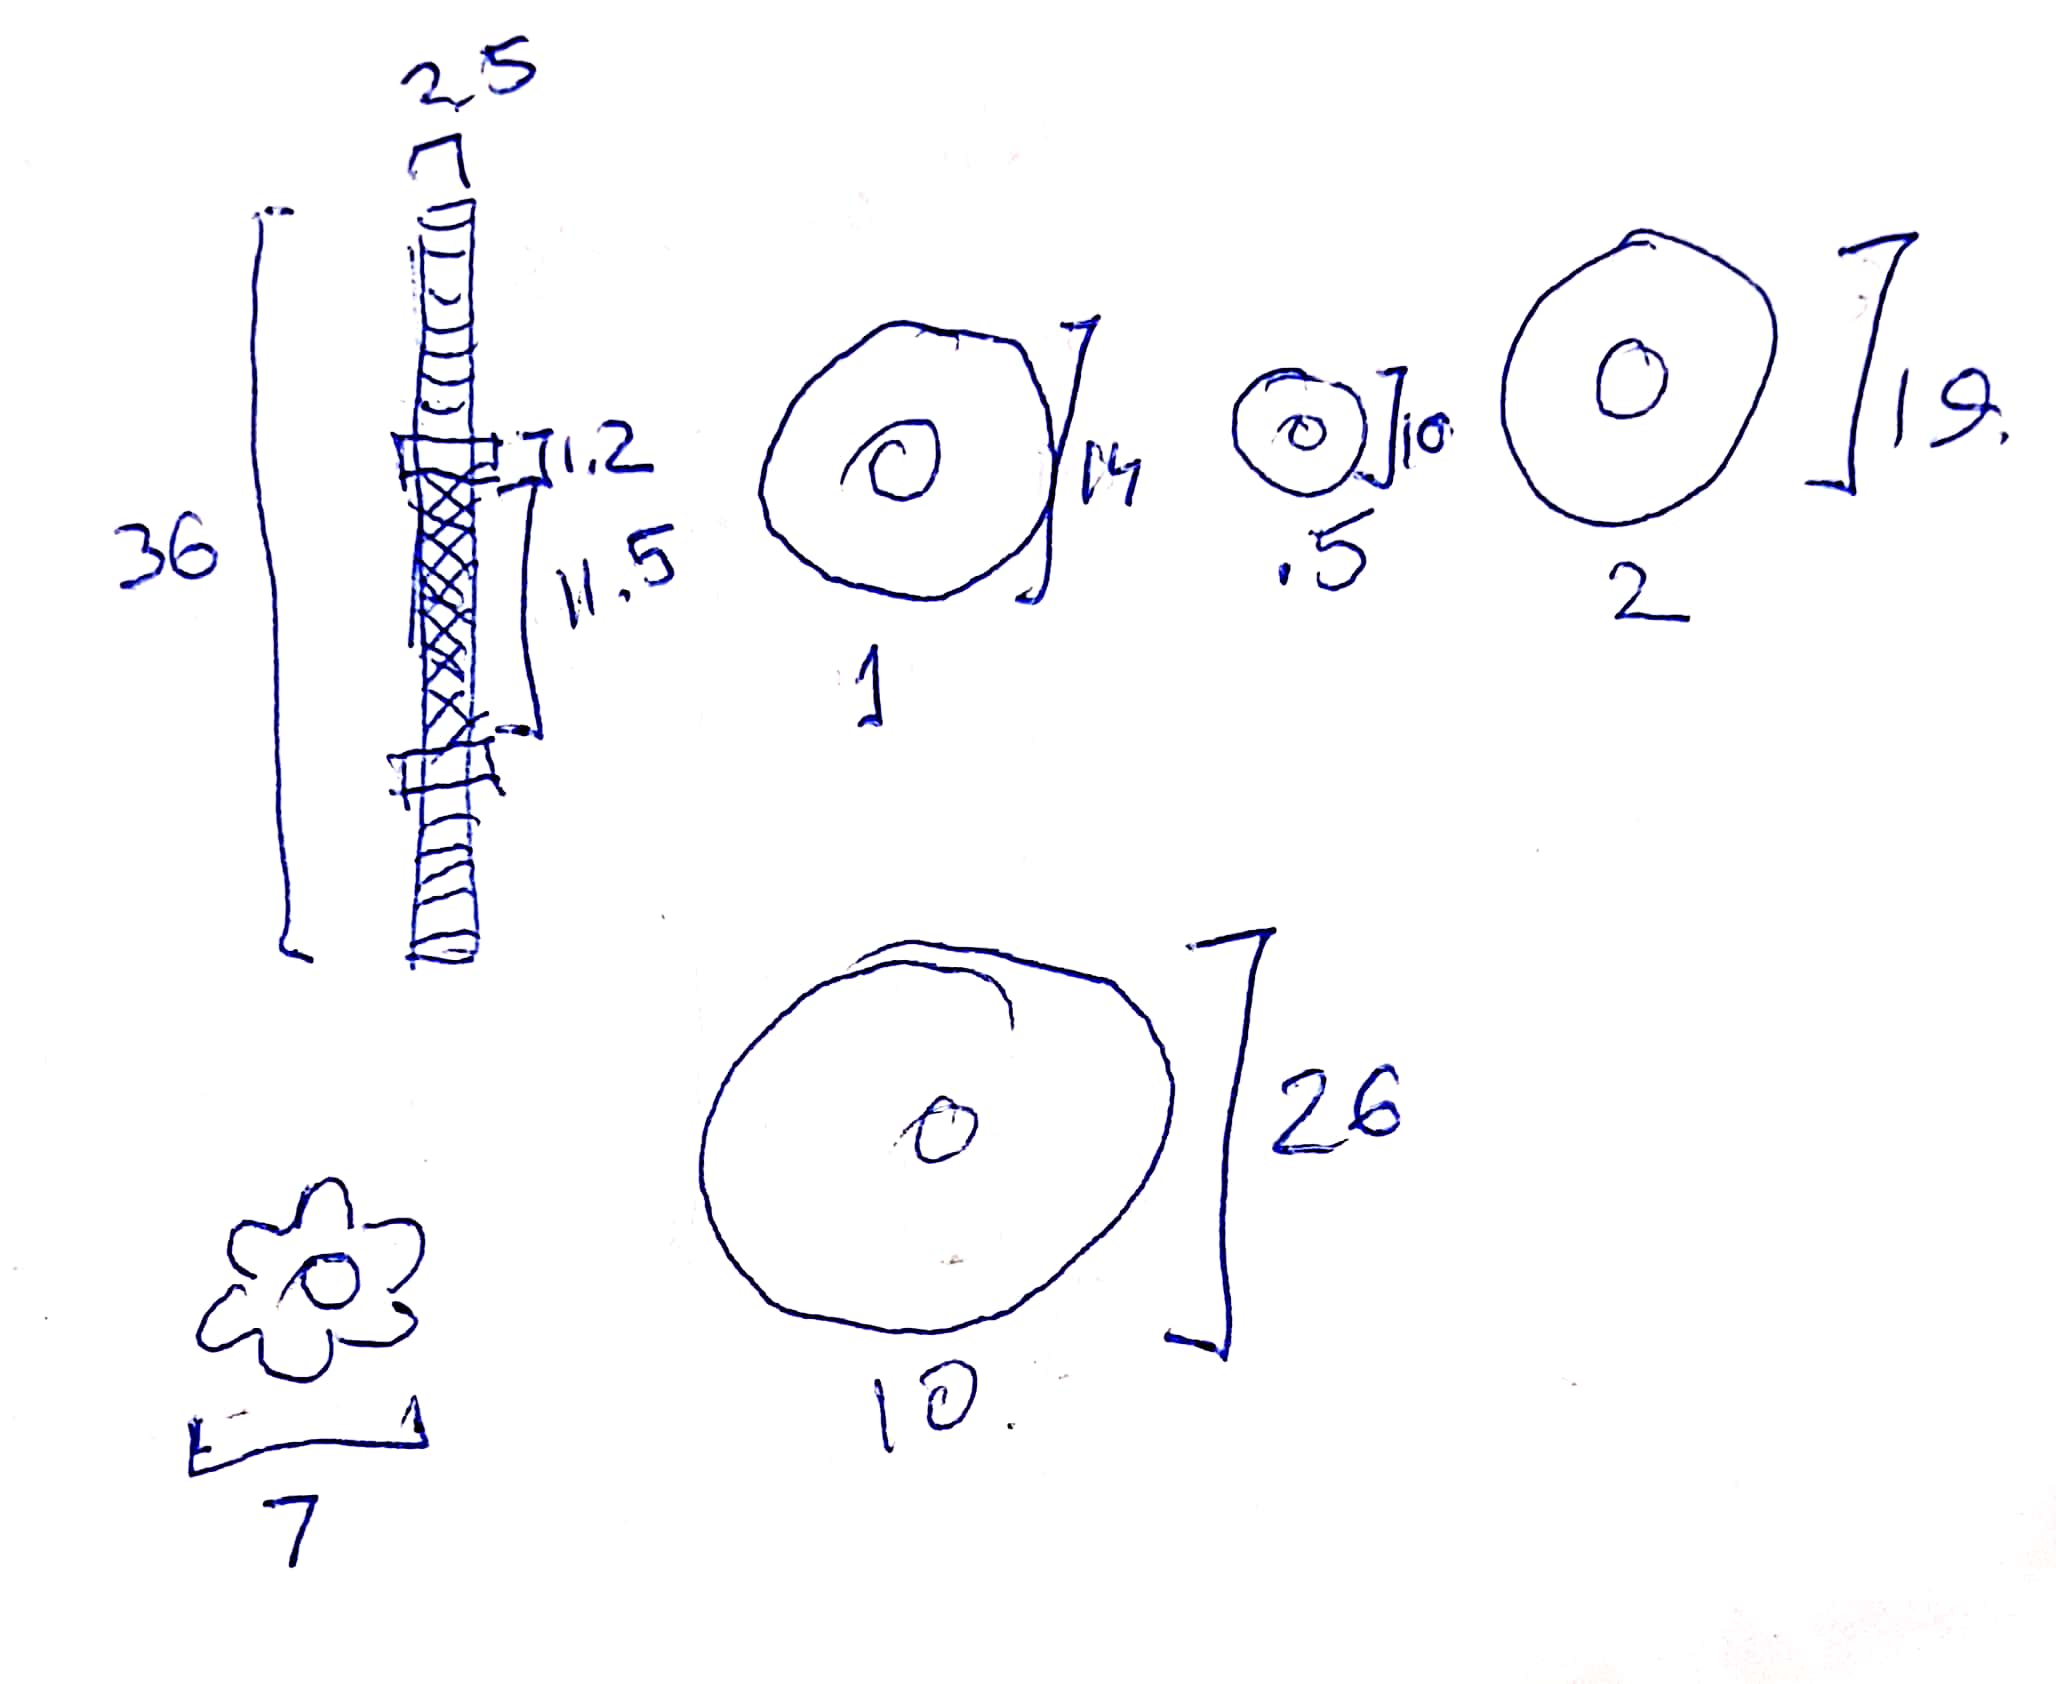 2.5
36
1.2
11.5
14
1
10
.5
19.
2
26
10.
7